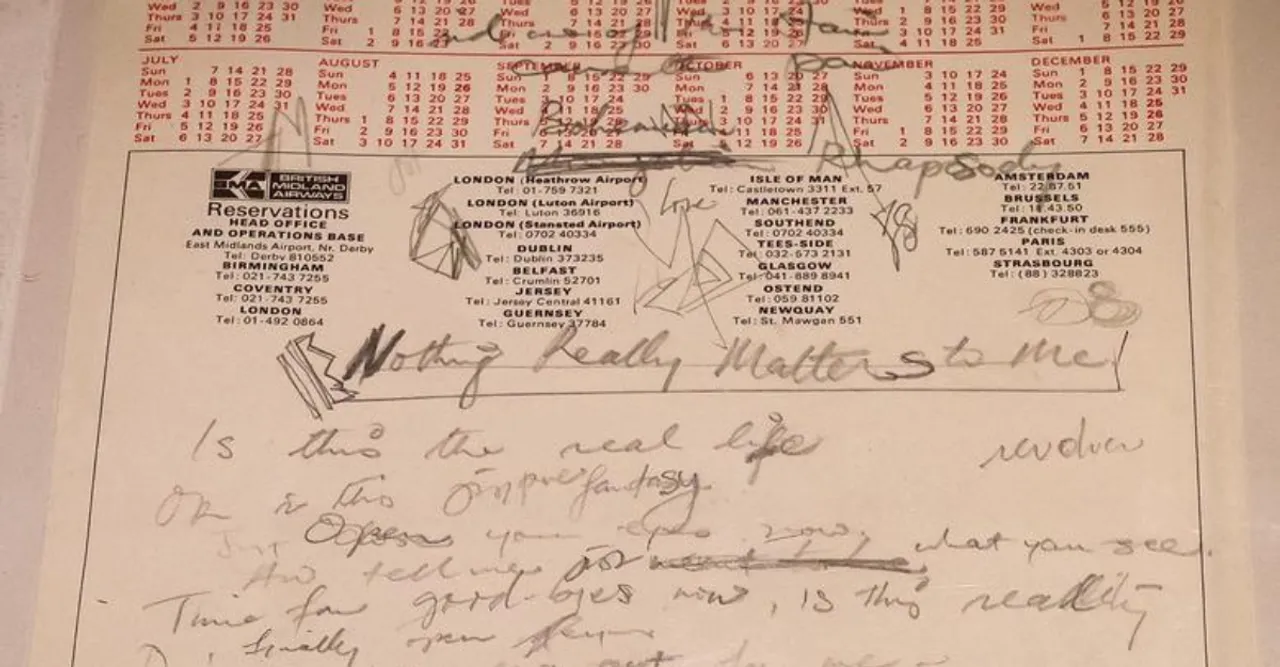 Wed 2 9 16 23 30
Thurs 3 10 17 24 31
Fri 4 11 18 25
Sat 5 12 19 26
JULY
Sun 7 14 21 28
Mon 1 8 15 22 29
Tues 2 9 16 23 30
Wed 3 10 17 24 31
Thurs 4 11 18 25
Fri 5 12 19 26
Sat 6 13 20 27
AUGUST
Sun 4 11 18 25
Mon 5 12 19 26
Tues 6 13 20 27
Wed 7 14 21 28
Thurs 1 8 15 22 29
Fri 2 9 16 23 30
Sat 3 10 17 24 31
SEPTEMBER
Sun 1 8 15 22 29
Mon 2 9 16 23 30
Tues 3 10 17 24
Wed 4 11 18 25
Thurs 5 12 19 26
Fri 6 13 20 27
Sat 7 14 21 28
OCTOBER
Sun 6 13 20 27
Mon 7 14 21 28
Tues 1 8 15 22 29
Wed 2 9 16 23 30
Thurs 3 10 17 24 31
Fri 4 11 18 25
Sat 5 12 19 26
NOVEMBER
Sun 3 10 17 24
Mon 4 11 18 25
Tues 5 12 19 26
Wed 6 13 20 27
Thurs 7 14 21 28
Fri 1 8 15 22 29
Sat 2 9 16 23 30
DECEMBER
Sun 1 8 15 22 29
Mon 2 9 16 23 30
Tues 3 10 17 24 31
Wed 4 11 18 25
Thurs 5 12 19 26
Fri 6 13 20 27
Sat 7 14 21 28
Bohemian
Rhapsody
BMA BRITISH MIDLAND AIRWAYS
Reservations
HEAD OFFICE
AND OPERATIONS BASE
East Midlands Airport, Nr. Derby
Tel: Derby 810552
BIRMINGHAM
Tel: 021-743 7255
COVENTRY
Tel: 021-743 7255
LONDON
Tel: 01-492 0864
LONDON (Heathrow Airport)
Tel: 01-759 7321
LONDON (Luton Airport)
Tel: Luton 36916
LONDON (Stansted Airport)
Tel: 0702 40334
DUBLIN
Tel: Dublin 373235
BELFAST
Tel: Crumlin 52701
JERSEY
Tel: Jersey Central 41161
GUERNSEY
Tel: Guernsey 37784
ISLE OF MAN
Tel: Castletown 3311 Ext. 57
MANCHESTER
Tel: 061-437 2233
SOUTHEND
Tel: 0702 40334
TEES-SIDE
Tel: 032-573 2131
GLASGOW
Tel: 041-889 8941
OSTEND
Tel: 059 81102
NEWQUAY
Tel: St. Mawgan 551
AMSTERDAM
Tel: 22.87.51
BRUSSELS
Tel: 18.43.50
FRANKFURT
Tel: 690 2425 (check-in desk 555)
PARIS
Tel: 587 5141 Ext. 4303 or 4304
STRASBOURG
Tel: (88) 328823
Nothing Really Matters to Me
Is this the real life
or is this just fantasy
Just Open your eyes now, what you see
And tell me
Time for good-byes now, is this reality
finally open